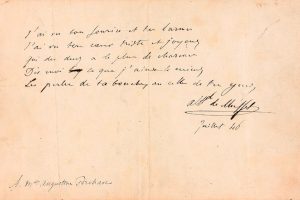 J'ai vu ton sourire et tes larmes
J'ai vu ton cœur triste et joyeux
qui des deux a le plus de charmes
Dis moi ce que j'aime le mieux
Les perles de ta bouche ou celles de tes yeux
Alf. de Musset
Juillet 46
A Mme Augustine Brohan